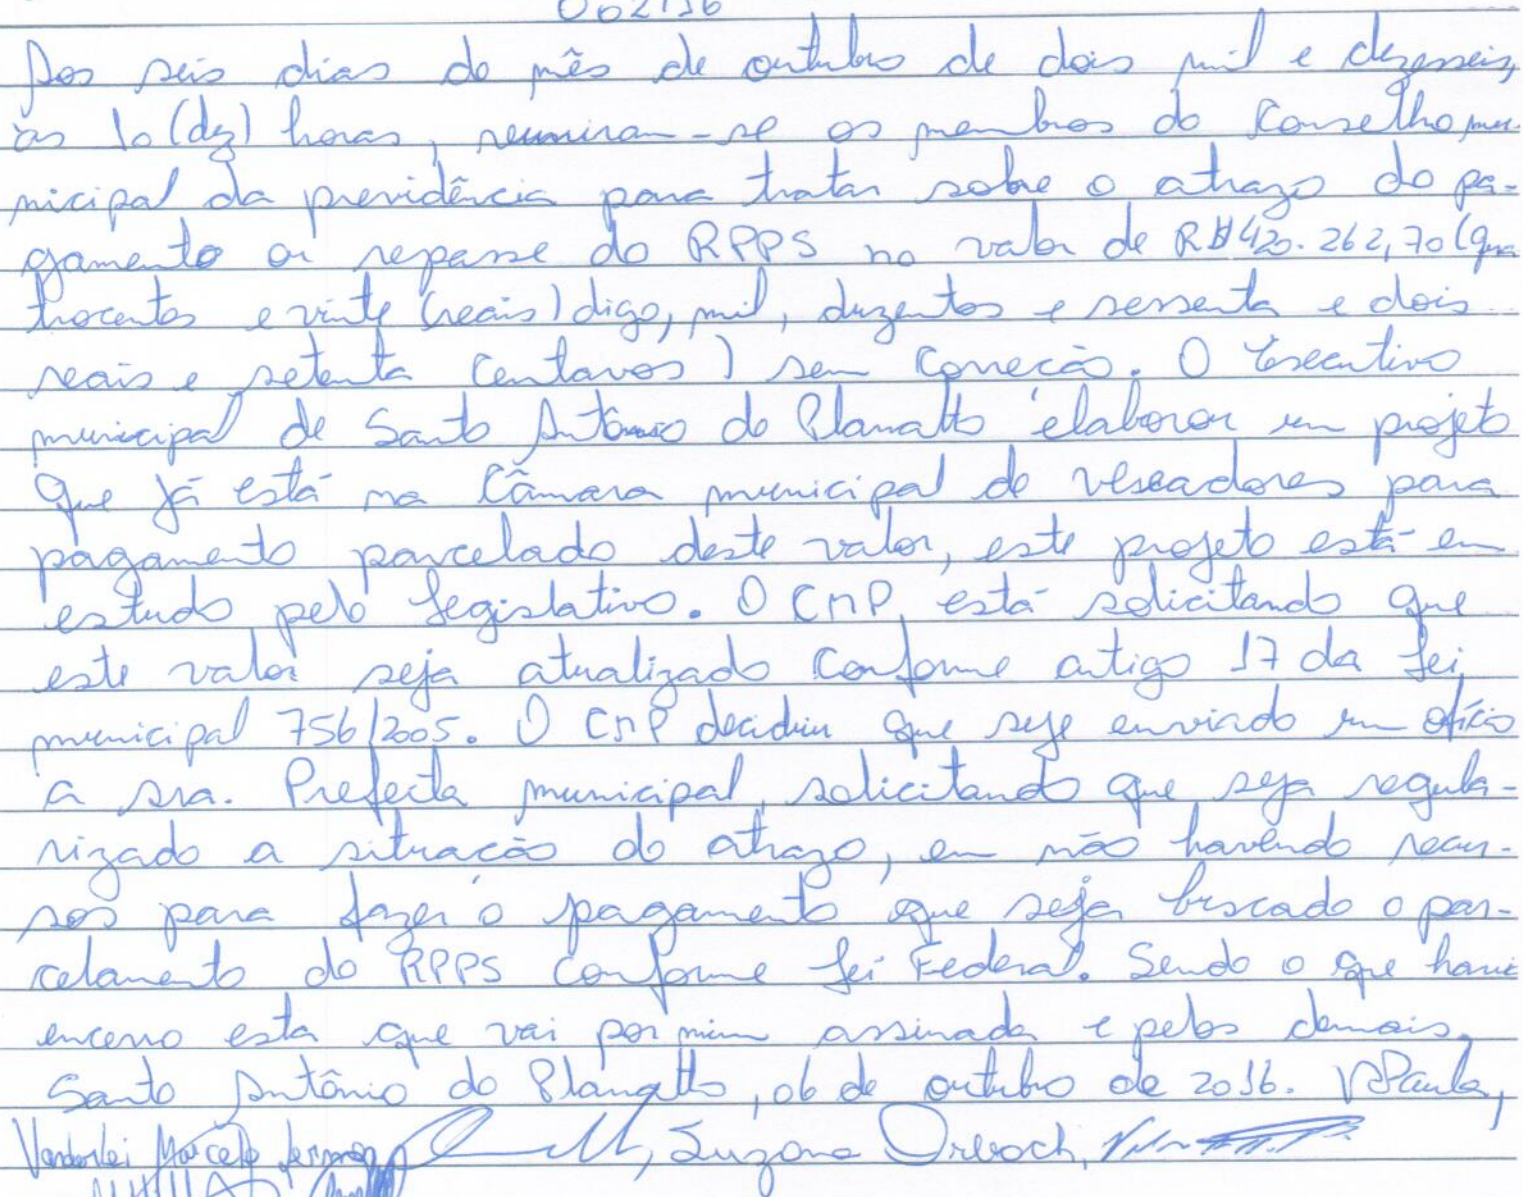 002/16
Aos seis dias do mês de outubro de dois mil e dezesseis,
às 10 (dez) horas, reuniram-se os membros do Conselho mu-
nicipal da previdência para tratar sobre o atrazo do pa-
gamento ou repasse do RPPS no valor de R$ 420.262,70 (qua
trocentos e vinte (reais) digo, mil, duzentos e sessenta e dois
reais e setenta centavos) sem correcão. O Executivo
municipal de Santo Antônio do Planalto elaborou um projeto
que já está na Câmara municipal de vereadores para
pagamento parcelado deste valor, este projeto está em
estudo pelo Legislativo. O CMP, está solicitando que
este valor seja atualizado conforme artigo 17 da Lei
municipal 756/2005. O CMP decidiu que seje enviado um ofício
a sra. Prefeita municipal, solicitando que seja regula-
rizado a situacão do atrazo, em não havendo recur-
sos para fazer o pagamento que seja buscado o par-
celamento do RPPS conforme Lei Federal. Sendo o que havia
encerro esta que vai por mim assinada e pelos demais.
Santo Antônio do Planalto, 06 de outubro de 2016. VPaula,
Vanderlei Marcelo, Suzana